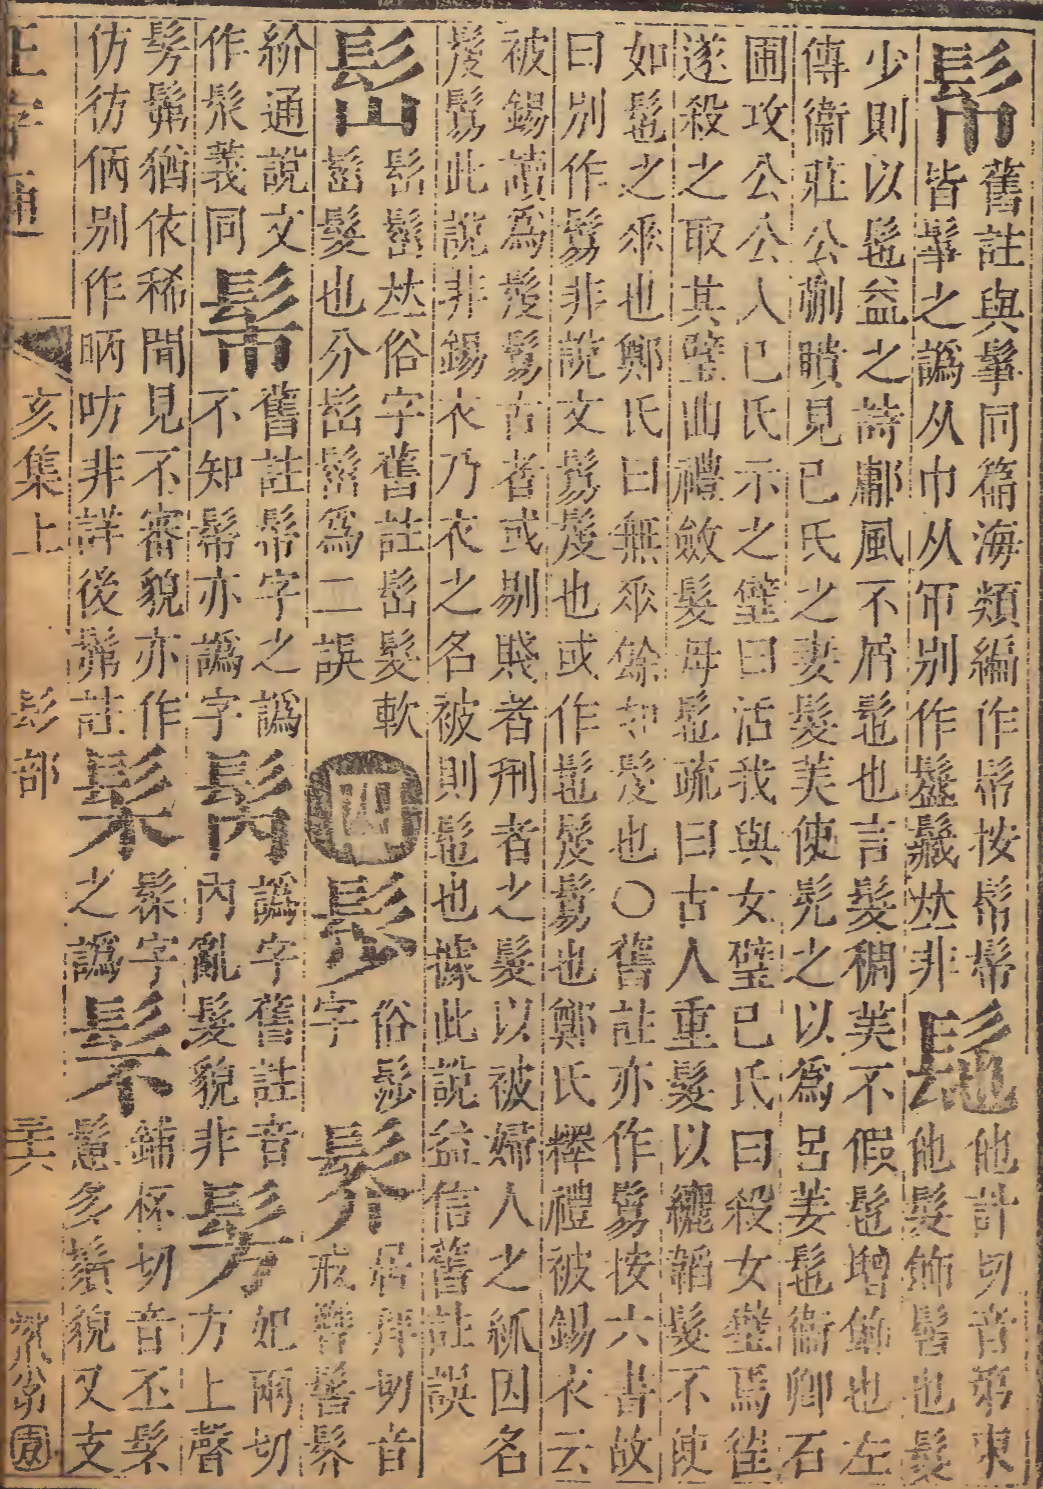 舊註與髼同篇海類編作按
皆髼之譌从巾从帀別作𠀤非
髢
他計切音第東
他髮飾髻也髮
少則以髢益之詩鄘風不屑髢也言髮稠美不假髢增飾也左
傳衞莊公蒯聵見已氏之妻髮美使髠之以爲呂姜髢衞卿石
圃攻公公入已氏示之璧曰活我與女璧已氏曰殺女璧焉往
遂殺之取其璧曲禮斂髮毋髢疏曰古人重髮以纚韜髮不使
如髢之𠂹也鄭氏曰無𠂹餘如髲也○舊註亦作鬄按六書故
曰別作鬄非說文鬄髲也或作髢髲鬄也鄭氏釋禮被錫衣云
被錫讀爲髲鬄古者或剔賤者刑者之髮以被婦人之紒因名
髲鬄此說非錫衣乃衣之名被則髢也據此說益信舊註誤
𠀤俗字舊註髮軟
髮也分爲二誤
四
俗髿
字
居拜切音
戒簪髻
紒通說文
作義同
舊註字之譌
不知亦譌字
譌字舊註音
內亂髮貌非
髣
妃兩切
方上聲
髣髴猶依稀閒見不審貌亦作
仿彷別作昞非詳後髴註
髤
髹字
之譌
䯽
鋪杯切音丕䯽
多鬚貌又支
正字通
亥集上
髟部
三六